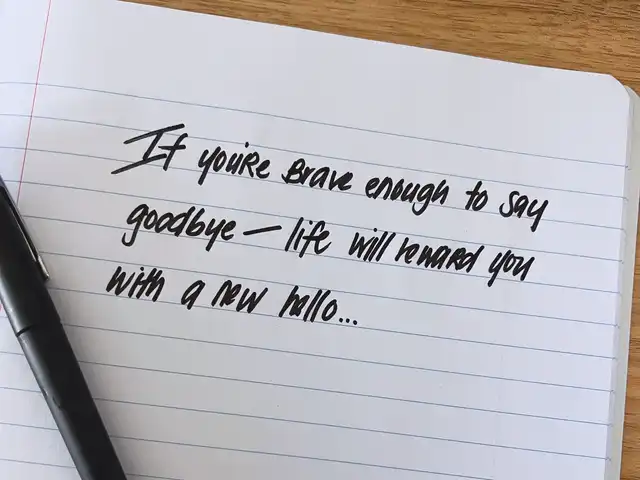 If you're brave enough to say
goodbye — life will reward you
with a new hello...